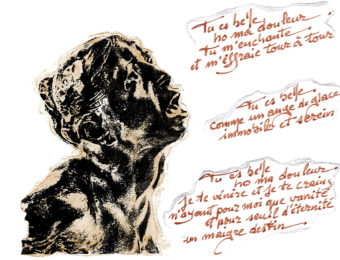 Tu es belle
ho ma douleur
Tu m'enchante
et m'éffraie tour à tour
Tu es belle
comme un ange de glace
immobile et serein
Tu es belle
ho ma douleur
je te vénère et je te crains
n'ayant pour moi que vanité
et pour seuil d'éternité
un maigre destin